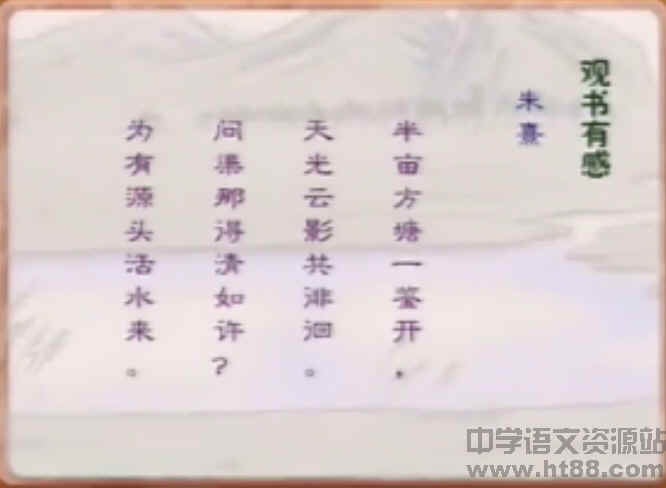 观书有感
朱熹
半亩方塘一鉴开，
天光云影共徘徊。
问渠那得清如许？
为有源头活水来。
中学语文资源站
www.ht88.com